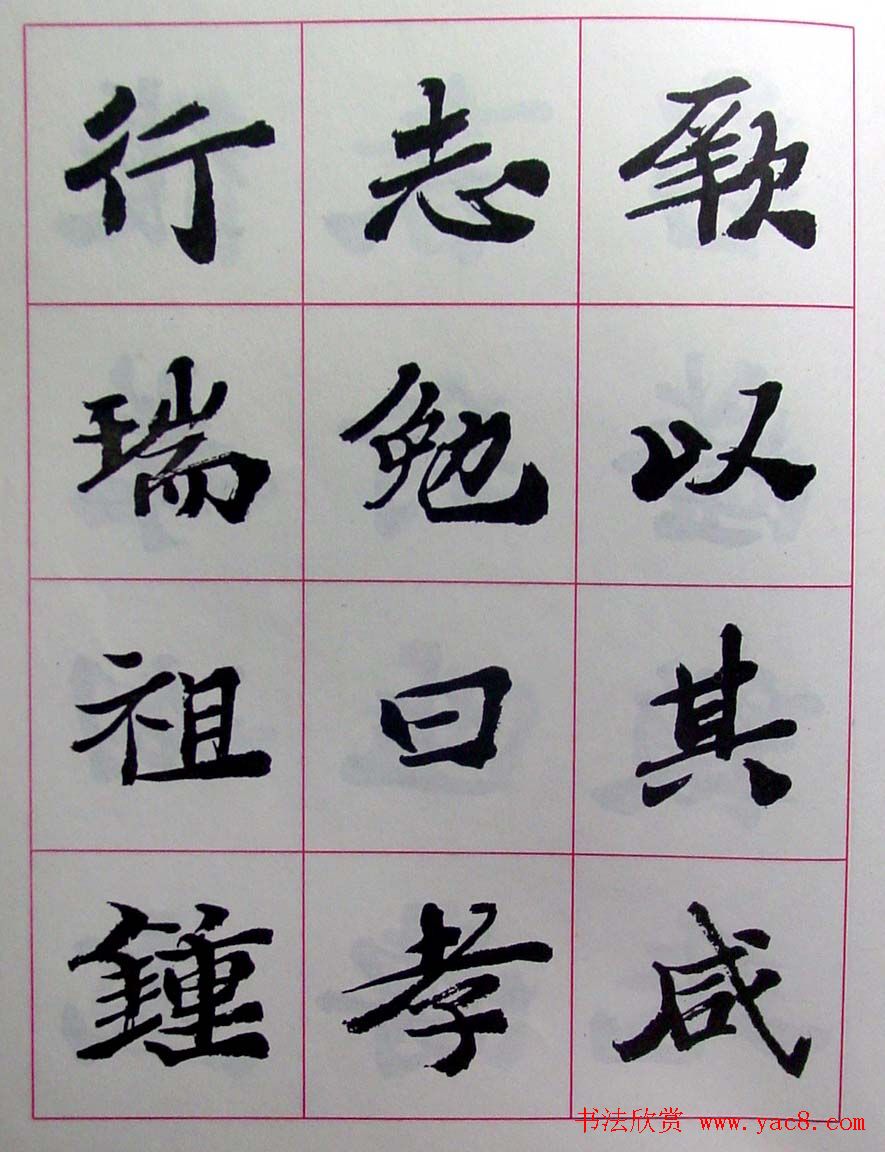 厥以其咸
志勉曰孝
行瑞祖鍾
书法欣赏 www.yac8.com